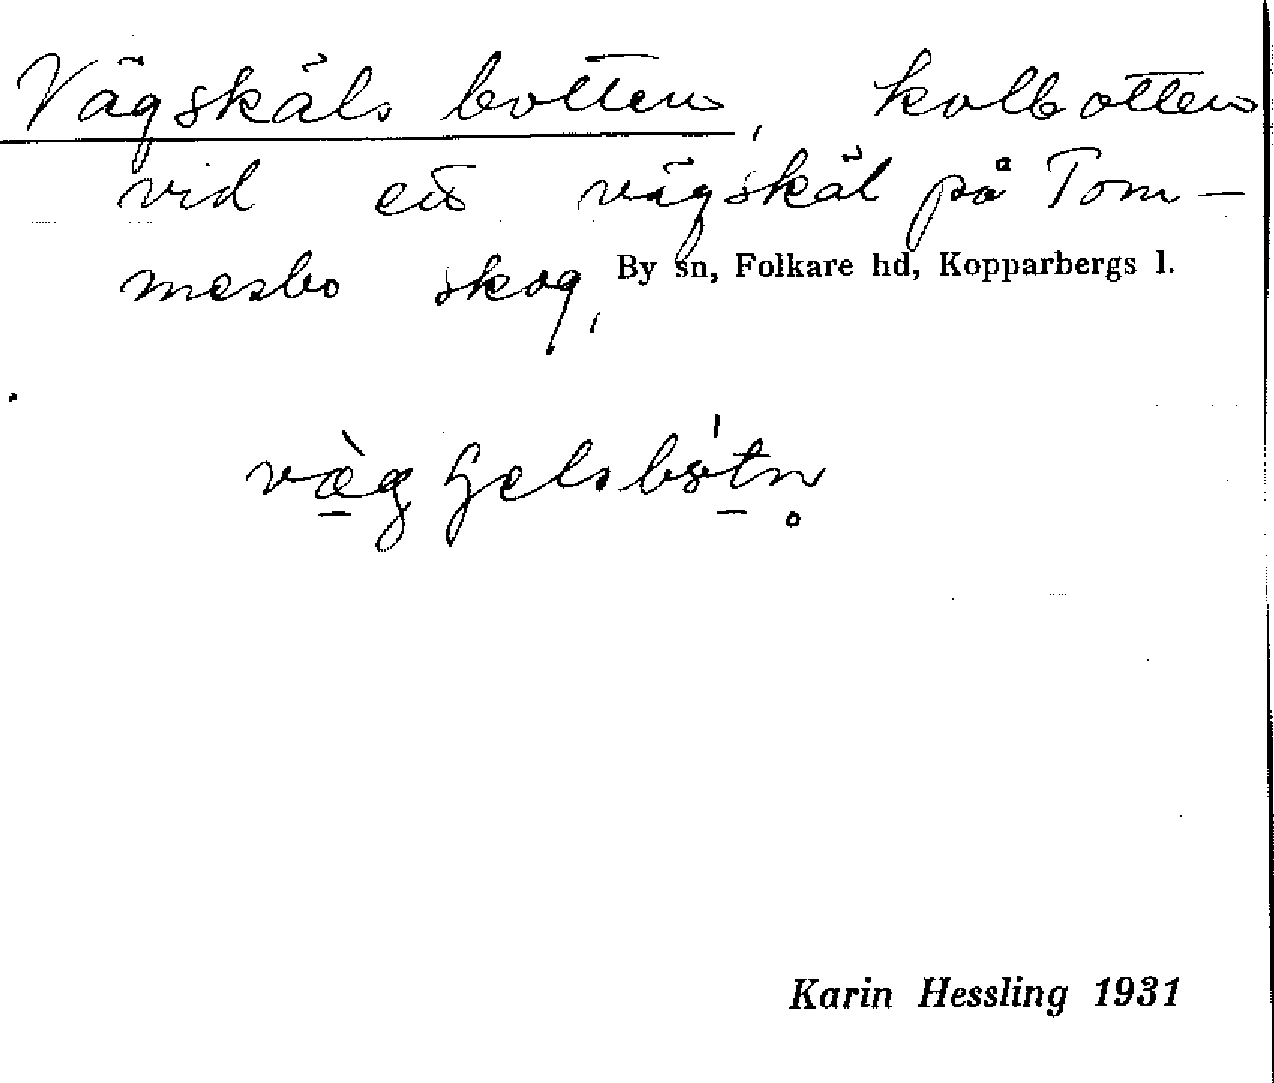 Vägskälsbotten, kolbotten
vid ett vägskäl på Tom-
mesbo skog,
By sn, Folkare hd, Kopparbergs l.
Karin Hessling 1931